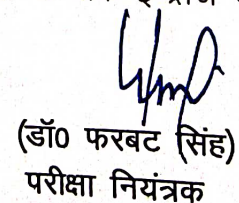 (डॉ0 फरबट सिंह)
परीक्षा नियंत्रक